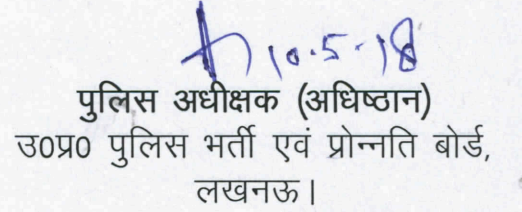 10.5.18
पुलिस अधीक्षक (अधिष्ठान)
उ0प्र0 पुलिस भर्ती एवं प्रोन्नति बोर्ड,
लखनऊ।